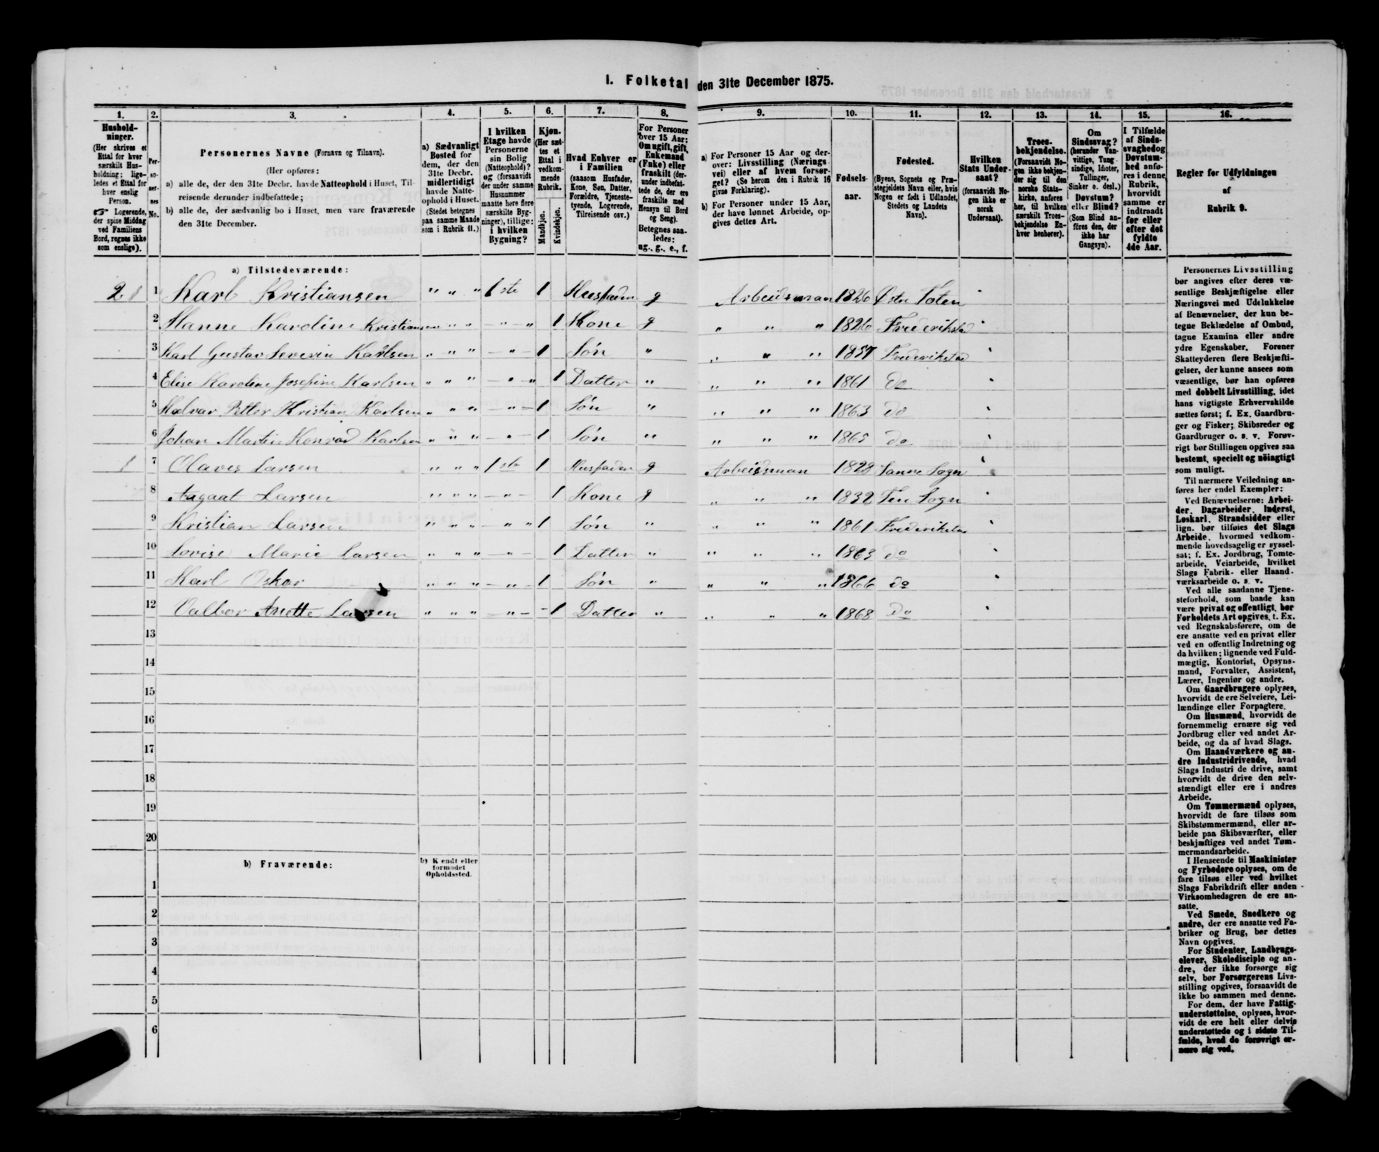 I. Folketal den 31te December 1875.
1. 2. 3. 4. 5. 6. 7. 8. 9. 10. 11. 12. 13. 14. 15. 16.
Hushold-
ninger.
(Her skrives et
Ettal for hver
særskilt Hus-
holdning; lige-
ledes et Ettal for
hver enslig
Person.
☞ Logerende,
der spise Middag
ved Familiens
Bord, regnes ikke
som enslige).
Per-
so-
ner-
nes
No.
Personernes Navne (Fornavn og Tilnavn).
(Her opføres:
a) alle de, der den 31te Decbr. havde Natteophold i Huset, Til-
reisende derunder indbefattede;
b) alle de, der sædvanlig bo i Huset, men vare fraværende
den 31te December.
a) Sædvanligt
Bosted for
dem, der den
31te Decbr.
midlertidigt
havde Natte-
ophold i Huset.
(Stedet betegnes
paa samme Maade
som i Rubrik 11.)
I hvilken
Etage havde
Personerne
sin Bolig
(Natteophold)?
og (forsaavidt
der under samme
Husnummer
maatte høre flere
særskilte Byg-
ninger), tillige:
i hvilken
Bygning?
Kjøn.
(Her sæt-
tes et
Ettal i
vedkom-
mende
Rubrik.
Mandkjøn.
Kvindekjøn.
Hvad Enhver er
i Familien
(saasom Husfader,
Kone, Søn, Datter,
Forældre, Tjeneste-
tyende, Logerende,
Tilreisende osv.)
For Personer
over 15 Aar:
Om ugift, gift,
Enkemand
(Enke) eller
fraskilt (der-
under indbefat-
tede de, der ere
fraskilte med
Hensyn til Bord
og Seng).
Betegnes saa-
ledes:
ug., g., e., f.
a) For Personer 15 Aar og der-
over: Livsstilling (Nærings
vei) eller af hvem forsør-
get? (Se herom den i Rubrik 16
givne Forklaring).
b) For Personer under 15 Aar,
der have lønnet Arbeide, op-
gives dettes Art.
Fødsels-
aar.
Fødested.
(Byens, Sognets og Præ-
stegjeldets Navn eller, hvis
Nogen er født i Udlandet,
Stedets og Landets
Navn).
Hvilken
Stats Under-
saat?
(forsaavidt No-
gen ikke er
norsk
Undersaat).
Troes-
bekjendelse.
(Forsaavidt No-
gen ikke bekjen-
der sig til den
norske Stats-
kirke, anføres
her, til hvilken
særskilt Troes-
bekjendelse En-
hver henhører).
Om
Sindssvag?
(herunder Van-
vittige, Tung-
sindige, Idioter,
Tullinger,
Sinker o. desl.)
Døvstum?
eller Blind?
(Som Blind an-
føres den, der
ikke har
Gangsyn).
I Tilfælde
af Sinds-
svaghed og
Døvstum-
hed anfø-
res i denne
Rubrik,
hvorvidt
samme er
indtraadt
før eller
efter det
fyldte
4de Aar.
Regler for Udfyldningen
af
Rubrik 9.
a) Tilstedeværende:
2 1 Karl Kristiansen " " " 1 ste 1 Husfader g Arbeidsmand 1826 Østre
2 Hanne Karoline Kristiansen " " " 1 Kone g " " " 1826 Frederikstad
3 Karl Gustav Severin Karlsen " " " 1 Søn " " " " 1857 Frederikstad
4 Elise Karoline Josefine Karlsen " " " 1 Datter " " " " 1861 do
5 Halvar Petter Kristian Karlsen " " " 1 Søn " " " " 1863 do
6 Johan Martin Konrad Karlsen " " " 1 Søn " " " " 1865 do
1 7 Olaves Larsen " " " 1 ste 1 Husfader g Arbeidsmand 1828 Sogn
8 Aagaat Larsen " " " 1 Kone g " " " 1832 Sogn
9 Kristian Larsen " " " 1 Søn " " " " 1861 Frederikstad
10 Lovise Marie Larsen " " " 1 Datter " " " " 1863 do
11 Karl Oskar " " " 1 Søn " " " " 1866 do
12 Valbor Anette Larsen " " " 1 Datter " " " " 1868 Do
13
14
15
16
17
18
19
20
b) Fraværende:
b) Kendt eller
formodet
Opholdssted.
1
2
3
4
5
6
Personernes Livsstilling
bør angives efter deres væ-
sentlige Beskjæftigelse eller
Næringsvei med Udelukkelse
af Benævnelser, der kun be-
tegne Beklædelse af Ombud,
tagne Examina eller andre
ydre Egenskaber. Forener
Skatteyderen flere Beskjæfti-
gelser, der kunne ansees som
væsentlige, bør han opføres
med dobbelt Livsstilling, idet
hans vigtigste Erhvervskilde
sættes først; f. Ex. Gaardbru-
ger og Fisker; Skibsreder og
Gaardbruger o. s. v. Forøv-
rigt bør Stillingen opgives saa
bestemt, specielt og nøiagtigt
som muligt.
Til nærmere Veiledning an-
føres her endel Exempler:
Ved Benævnelserne: Arbei-
der, Dagarbeider, Inderst,
Løskarl, Strandsidder eller
lign. bør tilføies det Slags
Arbeide, hvormed vedkom-
mende hovedsagelig er syssel-
sat; f. Ex. Jordbrug, Tomte-
arbeide, Veiarbeide, hvilket
Slags Fabrik- eller Haand-
værksarbeide o. s. v.
Ved alle saadanne Tjene-
steforhold, som baade kan
være privat og offentligt, bør
Forholdets Art opgives, t. Ex.
ved Regnskabsførere, om de
ere ansatte ved en privat eller
ved en offentlig Indretning og
da hvilken; lignende ved Fuld-
mægtig, Kontorist, Opsyns-
mand, Forvalter, Assistent,
Lærer, Ingeniør og andre.
Om Gaardbrugere oplyses,
hvorvidt de ere Selveiere, Lei-
lændinge eller Forpagtere.
Om Husmænd, hvorvidt de
fornemmelig ernære sig ved
Jordbrug eller ved andet Ar-
beide, og da af hvad Slags.
Om Haandværkere og an-
dre Industridrivende, hvad
Slags Industri de drive, samt
hvorvidt de drive den selv-
stændigt eller ere i andres
Arbeide.
Om Tømmermænd oplyses,
hvorvidt de fare tilsøs som
Skibstømmermænd, eller ar-
beide paa Skibsværfter, eller
beskjæftiges ved andet Tøm-
mermandsarbeide.
I Henseende til Maskinister
og Fyrbødere oplyses, om de
fare tilsøs eller ved hvilket
Slags Fabrikdrift eller anden
Virksomhedsgren de ere an-
satte.
Ved Smede, Snedkere og
andre, der ere ansatte ved Fa-
briker og Brug, bør dettes
Navn opgives.
For Studenter, Landbrugs-
elever, Skoledisciple og an-
dre, der ikke forsørge sig
selv, bør Forsørgerens Livs-
stilling opgives, forsaavidt de
ikke bo sammen med denne.
For dem, der have Fattig-
understøttelse, oplyses, hvor-
vidt de ere helt eller delvis
understøttede og i sidste Til-
fælde, hvad de forøvrigt er-
nære sig ved.